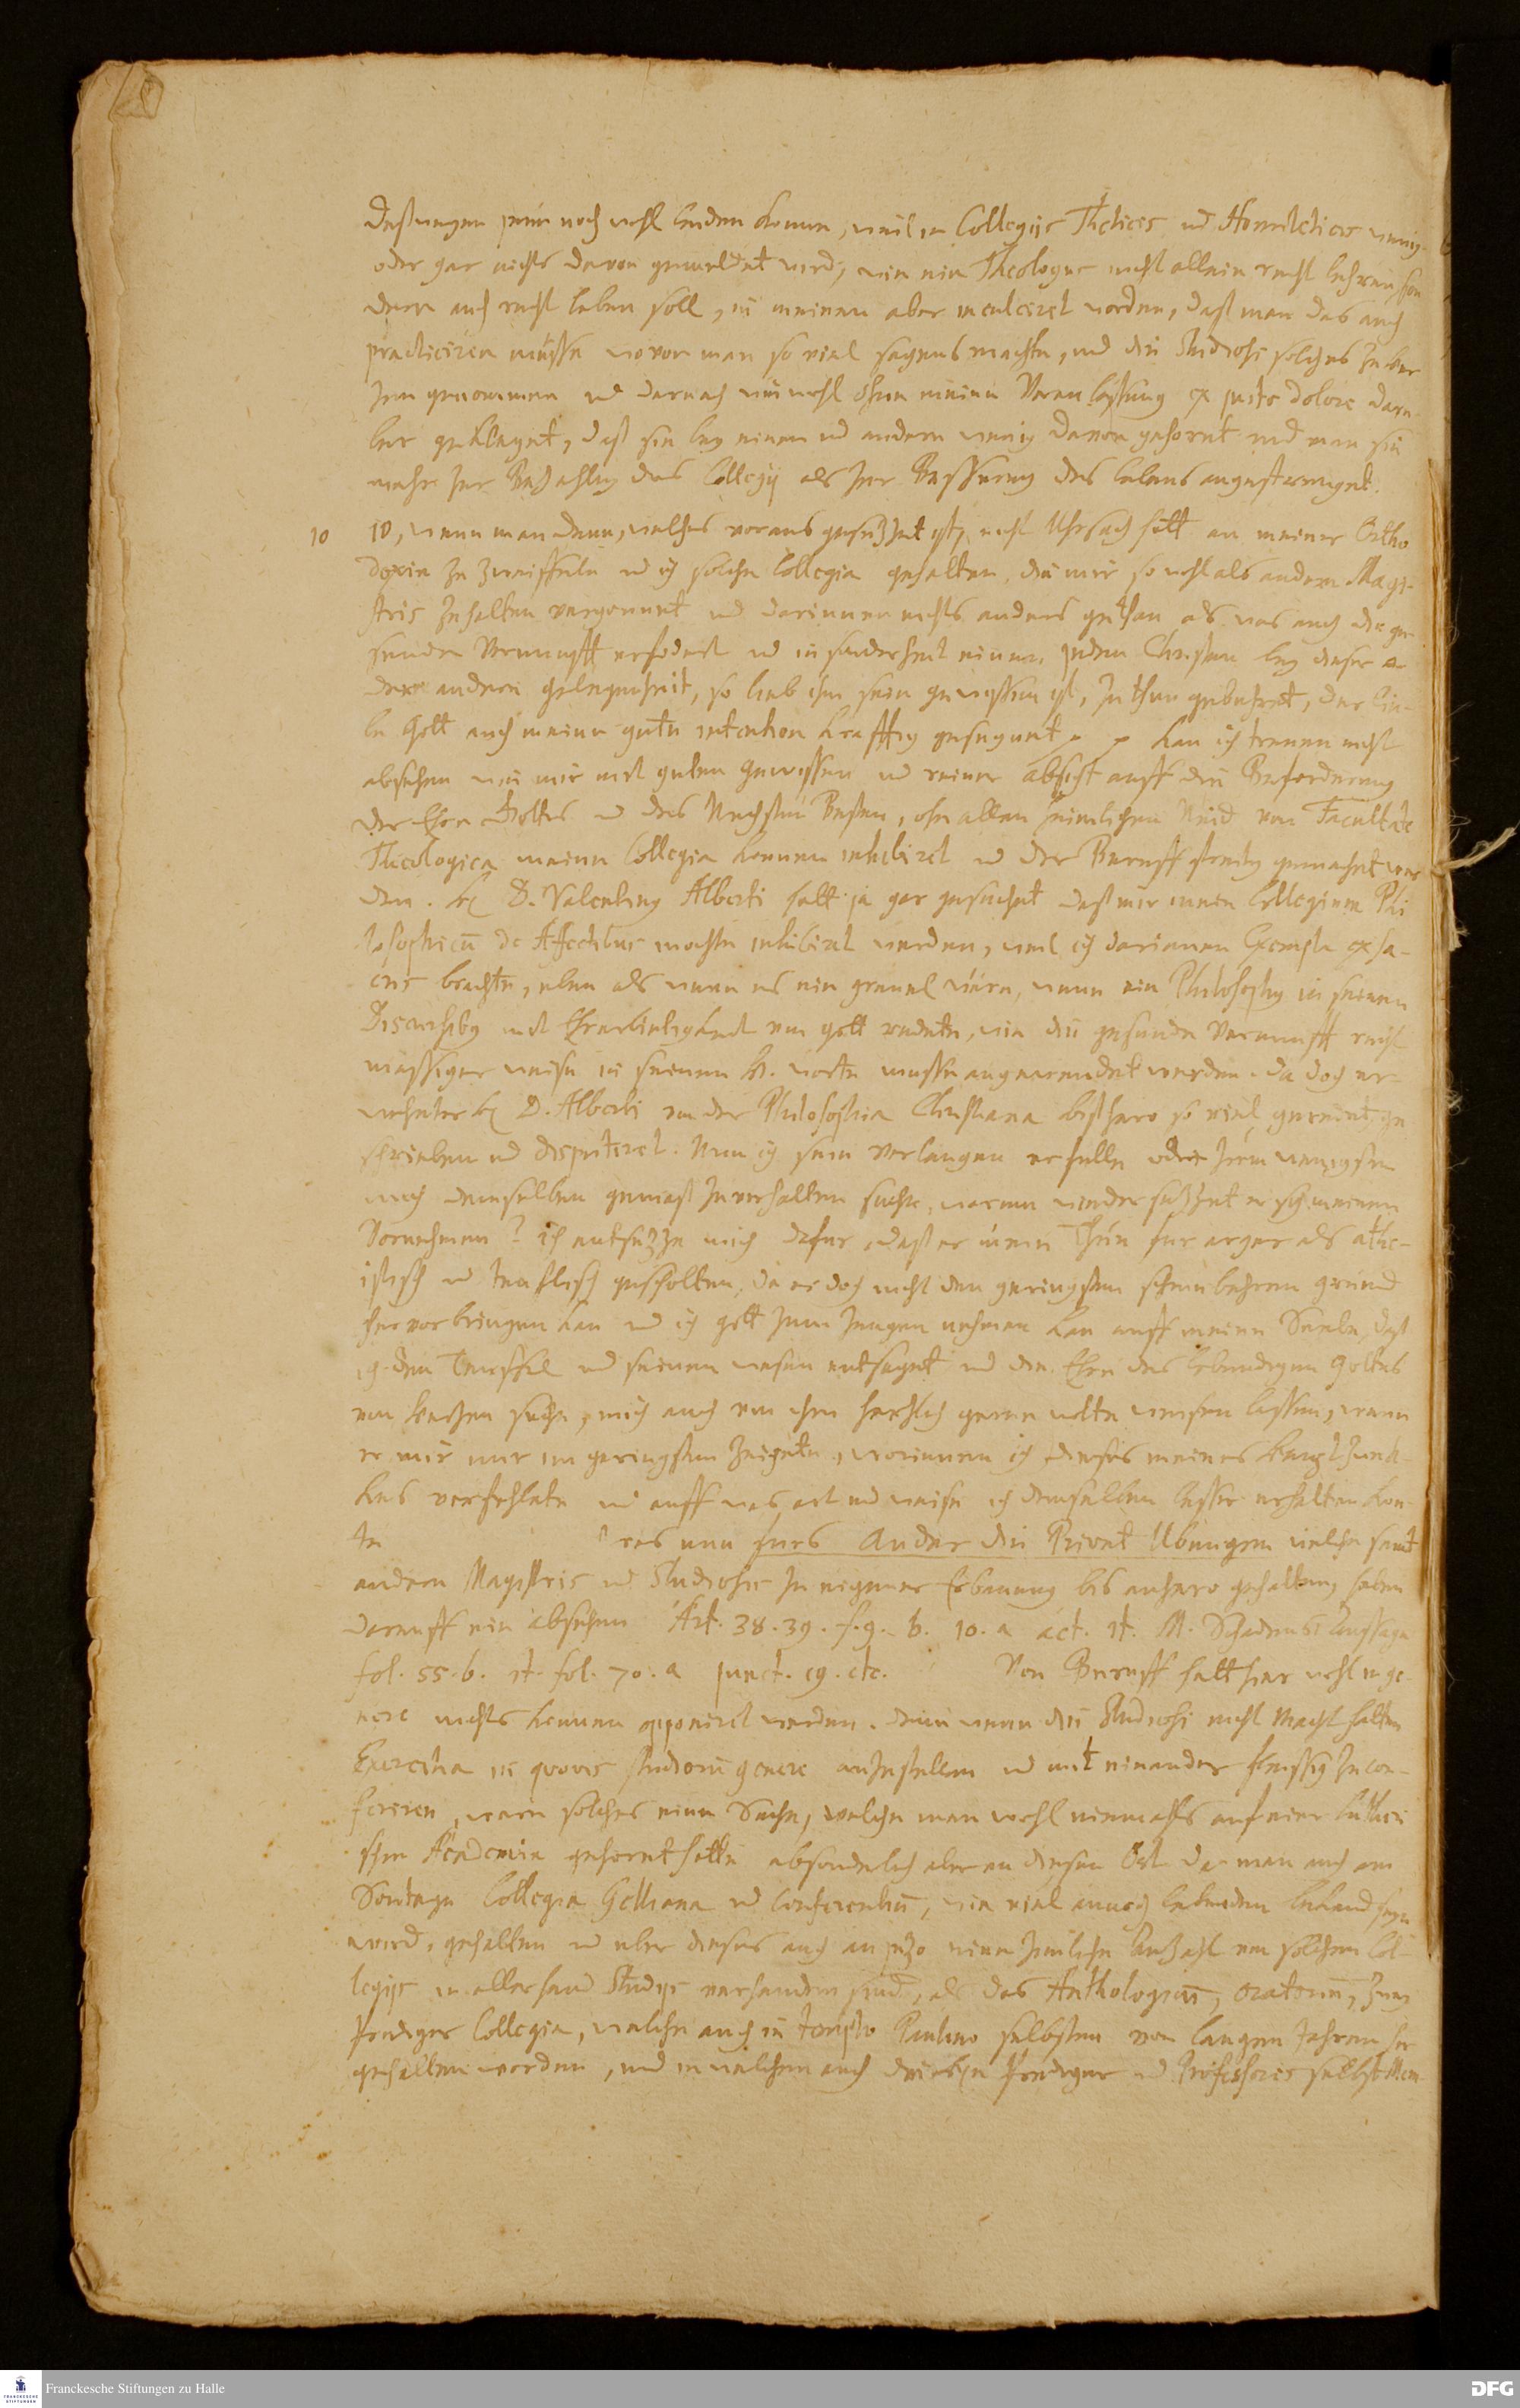 Deßwegen seün noch wohl leiden konne, weil in Collegiis Theticis ud Homileticis wenig
oder gar nichts davon gemeldet wird, wie ein Theologus nicht allein recht lehren son
dern auch recht leben soll, in meinen aber inculciret worden, daß man das auch
practiciren müsse wovon man so viel sagens machte, und die Studiosi solches zu her
zen genommen ud darnach wiewohl ohne meine Veranlassung ex justo dolore daru
ber geklaget, daß sie bey einem ud andern wenig davon gehöret und man sie
mehr zur Bezahlung des Collegij als zur Besserung des lebens angestrenget.
10 10, wenn man denn, welches voraus gesezzet ist, nicht Uhrsach hatt an meiner Ortho
doxie zu zweiffeln ud ich solche Collegia gehalten, die mir so wohl als andern Magi-
stris zu halten vergonnet ud darinnen nichts anders gethan als was auch die ge
sunde Vernunfft erfodert ud in sonderheit einem jeden Christen bey dieser o
der andern gelegenheit, so lieb ihm sein gewissen ist, zu thun gebuhret, der lie-
be Gott auch meine gute intention krafftig gesegnet kan ich treuen nicht
absehen wie mir mit guten Gewissen ud reiner absicht auff die Beforderung
der Ehre Gottes ud des Nechsten Besten, ohn allen heimlichen Neid von Facultate
Theologica meine Collegia konnen inhibiret ud der Beruff streitig gemachet wer
den. H D. Valentinus Alberti hatt ja gar gesuchet daß mir mein Collegium Phi
losophicū de Affectibus mochte inhibiret werden, weil ich darinnen Exempla ex sa-
cris brachte, eben als wenn es ein greuel wäre, wenn ein Philosophus in seinen
Discursibus mit Ehrerbietigkeit von Gott redete, wie die gesunde Vernunfft recht
massiger weise in seinem H. worte musse angewendet werden. da doch er-
wehnter H D. Alberti von der Philosophia Christiana bißhero so viel geredet, ge
schrieben ud disputiret. Nun ich sein Verlangen erfulle oder zum wenigsten
mich demselben gemäß zu verhalten suche, warum wiedersezzet er sich meinem
Vornehmen? ich entsezze mich dafur, daß er mein Thun fur arger als athe-
istisch ud teuflisch gescholten, da er doch nicht den geringsten scheinbahren grund
hervorbringen kan ud ich Gott zum Zeugen nehmen kan auff meine Seele, daß
ich dem Teuffel ud seinem wesen entsaget ud die Ehre des lebendigen Gottes
von Herzen suche, mich auch von ihm herzlich gerne wolte weisen lassen, wenn
er mir nur im geringsten zeigete, worinnen ich dieses meines Hauptzwek
kes verfehlete ud auff was art ud weise ich denselben besser erhalten kon
te Was nun furs Ander die Privat Ubungen welche samt
andern Magistris ud Studiosis zu eigener Erbauung bis anhero gehalten haben
darauff ein absehen Art. 38. 39. f. 9. b. 10. a act. it. M. Schadens Aussage
fol. 55. b. it. fol. 70. a punct. 19. etc. Von Beruff hatt hier wohl in ge
nere nichts konnen opponiret werden. denn wenn die Studiosi nicht Macht hatten
Exercitia in quovis studiorū genere anzustellen ud mit einander fleissig zu con-
feriren, ware solches eine Sache, welche man wohl niemahls auf einer Lutheri
schen Academia gehoret hatte absonderlich aber an diesem Ort da man auch am
Sontage Collegia Gelliana ud Conferentiū, wie viel annoch lebenden bekand seyn
wird, gehalten ud uber dieses auch an jezo eine zimliche Anzahl von solchen Col-
legiis in allerhand Studiis vorhanden sind, als das Anthologicū, Oratoriū, zwey
Prediger Collegia, welche auch in templo Paulino selbsten von langen Jahren her
gehalten worden, und in welchen auch die besten Prediger ud Professores selbst Mem-
Franckesche Stiftungen zu Halle
FRANCKESCHE STIFTUNGEN
DFG